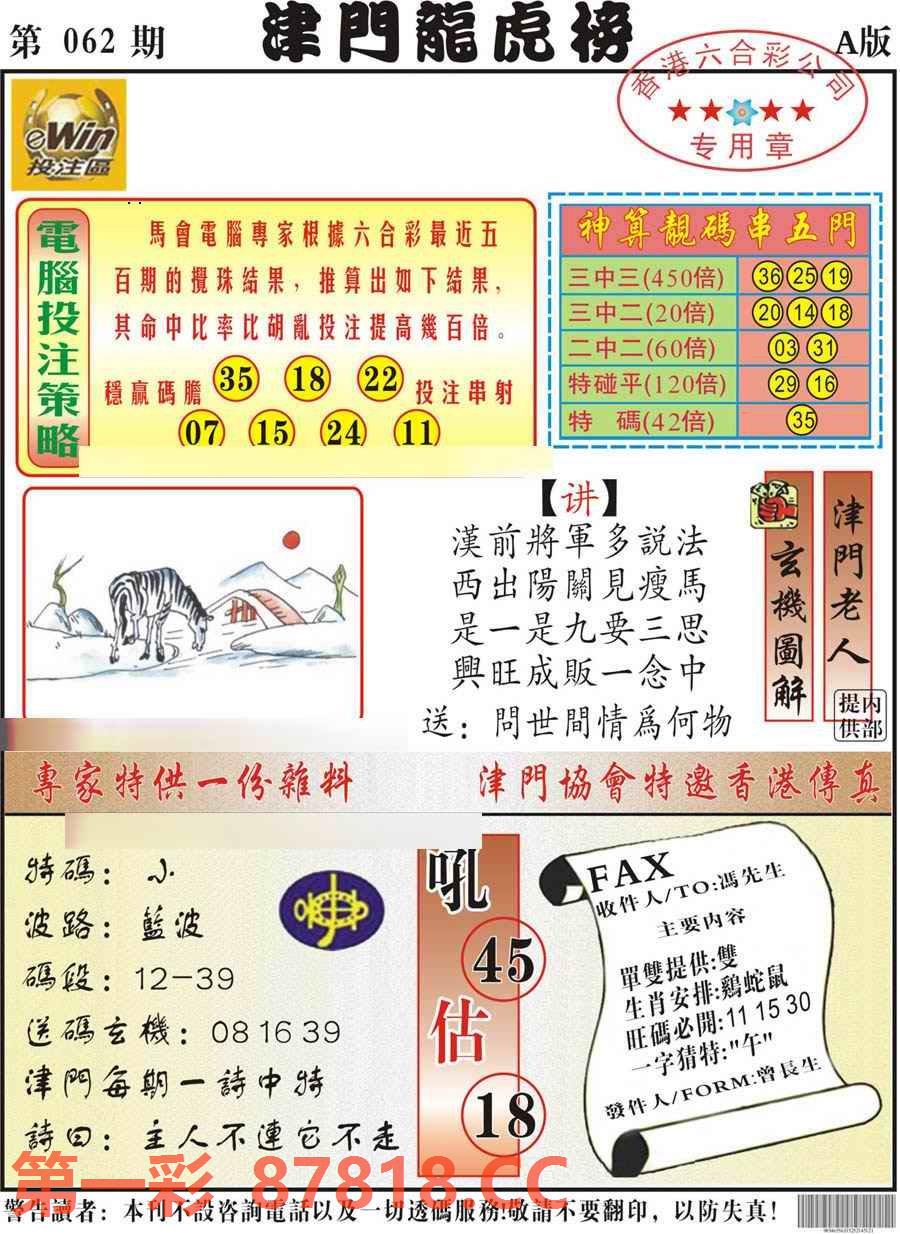 第 062 期
津門龍虎榜
A版
香港六合彩公司
专用章
eWin
投注區
電腦投注策略
馬會電腦專家根據六合彩最近五
百期的攪珠結果，推算出如下結果，
其命中比率比胡亂投注提高幾百倍。
穩贏碼膽 35 18 22 投注串射
07 15 24 11
神算靚碼串五門
三中三(450倍) 36 25 19
三中二(20倍) 20 14 18
二中二(60倍) 03 31
特碰平(120倍) 29 16
特 碼(42倍) 35
【讲】
漢前將軍多説法
西出陽關見瘦馬
是一是九要三思
興旺成販一念中
送：問世間情爲何物
玄機圖解
津門老人
提供
内部
專家特供一份雜料
津門協會特邀香港傳真
特碼：小
波路：藍波
碼段：12-39
送碼玄機：08 16 39
津門每期一詩中特
詩曰：主人不連它不走
吼
45
估
18
FAX
收件人/TO:馮先生
主要内容
單雙提供:雙
生肖安排:鷄蛇鼠
旺碼必開:11 15 30
一字猜特:"午"
發件人/FORM:曾長生
第一彩 87818.CC
警告讀者：本刊不設咨詢電話以及一切透碼服務!敬請不要翻印，以防失真!